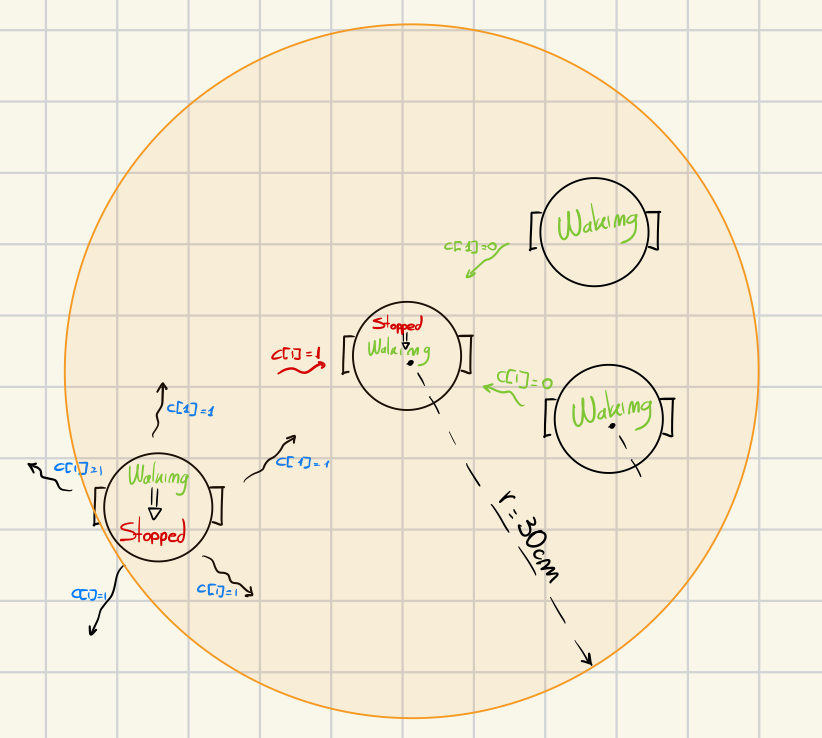 Walking
C[1]=0
Stopped
Walking
C[1]=1
C[1]=0
Walking
C[1]=1
C[1]=1
C[1]=1
Walking
Stopped
r=30cm
C[1]=1
C[1]=1